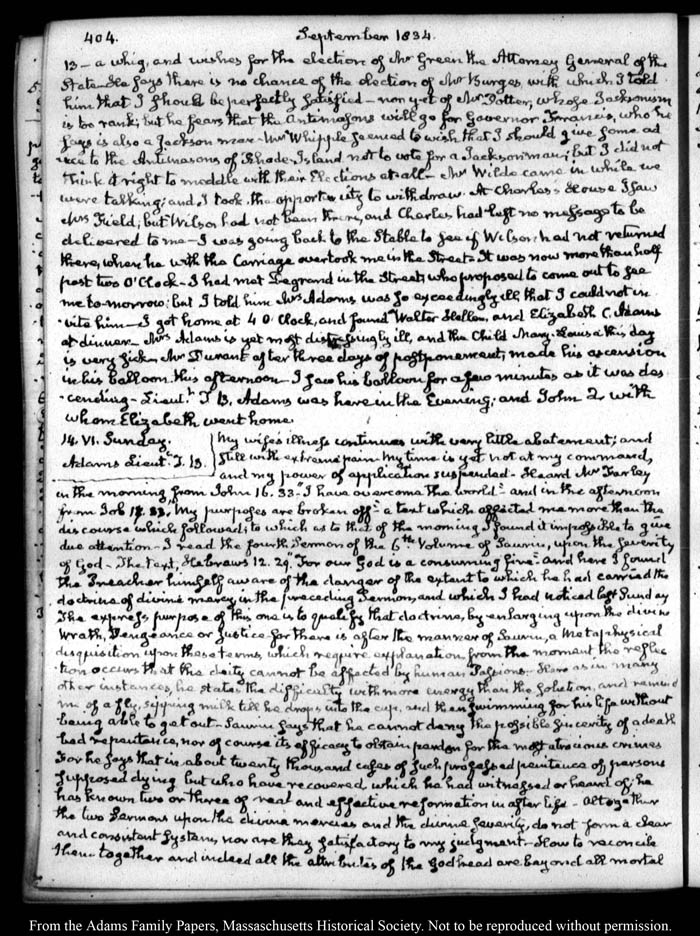 404. September 1834.
13 — a whig, and wishes for the election of Mr Green the Attorney General of the
State — He says there is no chance of the election of Mr Burges, with which I told
him that I should be perfectly satisfied — nor yet of Mr Potter, whose Jacksonism
is too rank; but he fears that the Antimasons will go for Governor Francis, who he
says is also a Jackson man — Mr Whipple seemed to wish that I should give some ad
vice to the Antimasons of Rhode-Island not to vote for a Jackson man; but I did not
think it right to meddle with their Elections at all — Mr Wilde came in while we
were talking; and I took the opportunity to withdraw. At Charles's House I saw
Mrs Field; but Wilson had not been there, and Charles had left no message to be
delivered to me — I was going back to the Stable to see if Wilson had not returned
there, when he with the Carriage overtook me in the Street — It was now more than half
past two O'Clock — I had met Degrand in the Street, who proposed to come out to see
me to-morrow; but I told him Mrs Adams was so exceedingly ill, that I could not in
vite him — I got home at 4 O'Clock, and found Walter Hellen, and Elizabeth C. Adams
at dinner — Mrs Adams is yet most distressingly ill, and the Child Mary-Louisa this day
is very sick — Mr Durant after three days of postponement, made his ascension
in his balloon this afternoon — I saw his balloon for a few minutes as it was des
cending — Lieutt T. B. Adams was here in the Evening; and John 2. with
whom Elizabeth went home.
14. VI. Sunday. My wife's illness continues with very little abatement; and
Adams Lieutt T. B. still with extreme pain — My time is yet not at my command,
and my power of application suspended — Heard Mr Farley
in the morning from John 16. 33 "I have overcome the world" and in the afternoon
from Job "My purposes are broken off" a text which affected me more than the
discourse which followed; to which as to that of the morning I found it impossible to give
due attention — I read the fourth Sermon of the 6th Volume of Saurin, upon the Severity
of God — The text, Hebrews 12. 29. "For our God is a consuming fire" and here I found
the Preacher himself aware of the danger of the extent to which he had carried the
doctrine of divine mercy, in the preceding Sermon, and which I had noticed last Sunday
The express purpose of this one is to qualify that doctrine, by enlarging upon the divine
wrath, Vengeance or Justice for there is after the manner of Saurin, a Metaphysical
disquisition upon these terms, which require explanation from the moment the reflec
tion occurs that the deity cannot be affected by human Passions. Here as in many
other instances, he states the difficulty with more energy than the solution, and reminds
me of a fly, sipping milk till he drops into the cup, and then swimming for his life without
being able to get out — Saurin says that he cannot deny the possible sincerity of a death
bed repentance, nor of course its efficacy to obtain pardon for the most atrocious crimes
For he says that in about twenty thousand cases of such professed penitence of persons
supposed dying but who have recovered, which he had witnessed or heard of, he
has known two or three of real and effective reformation in after life — Altogether
the two Sermons upon the divine mercies and the divine severity, do not form a clear
and consistent System, nor are they satisfactory to my judgment — How to reconcile
them together and indeed all the attributes of the Godhead are beyond all mortal
From the Adams Family Papers, Massachusetts Historical Society. Not to be reproduced without permission.